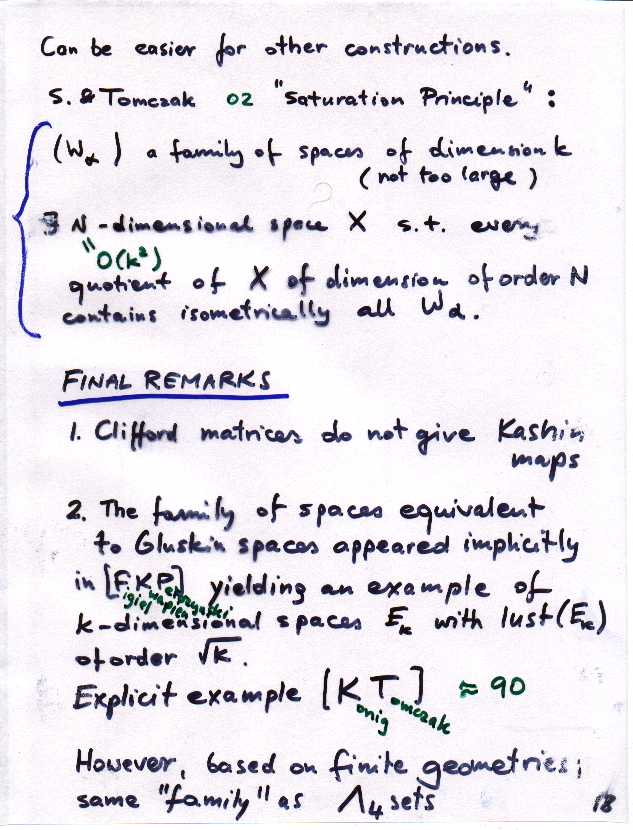 Can be easier for other constructions.
S. & Tomczak 02 "Saturation Principle":
(Wα) a family of spaces of dimension k
(not too large)
∃ N-dimensional space X s.t. every
" O(k²)
quotient of X of dimension of order N
contains isometrically all Wα.
FINAL REMARKS
1. Clifford matrices do not give Kashin
maps
2. The family of spaces equivalent
to Gluskin spaces appeared implicitly
in [FKP] yielding an example of
igiel wapien
k-dimensional spaces Eₖ with lust(Eₖ)
of order √k.
Explicit example [K T ] ≈ 90
onig omczak
However, based on finite geometries;
same "family" as Λ₄ sets
18